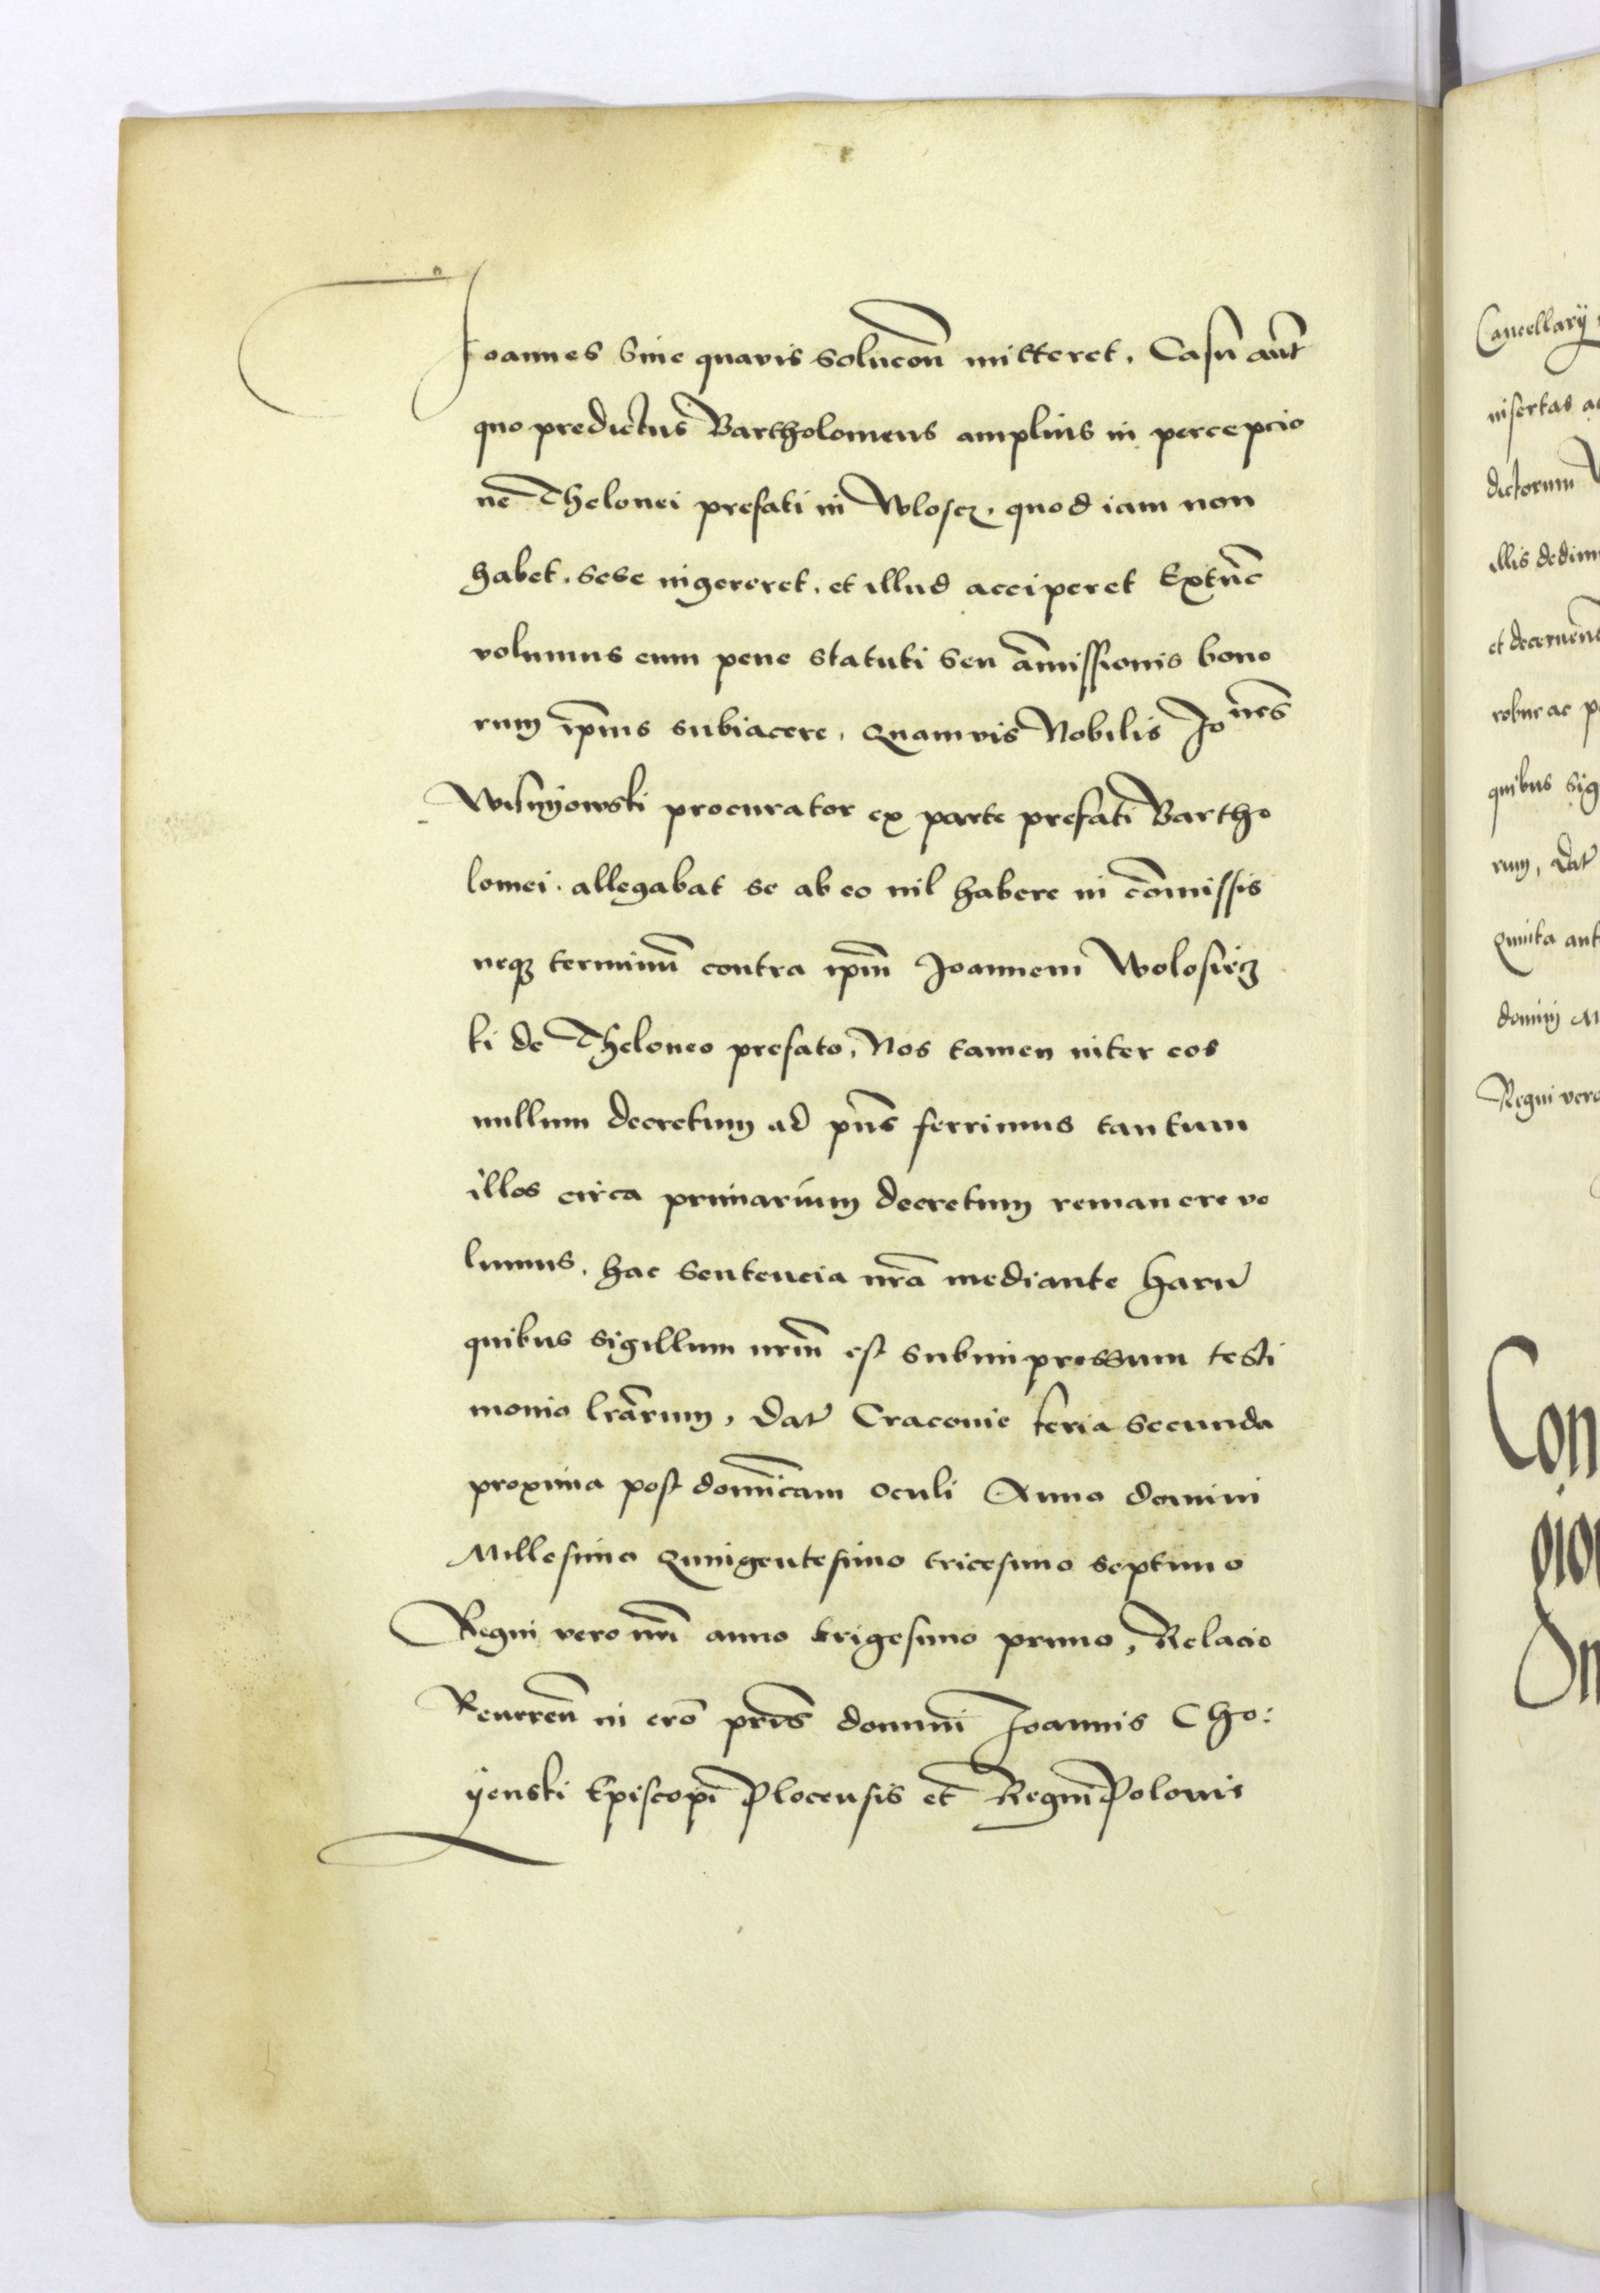 Joannes Sine quavis solucōn mitteret, Casu aūt
quo predictus Bartholomeus amplius in percepcio
nē Thelonei prefati in Wloscz, quod iam non
habet, sese ingereret, et illud acciperet Extūc
volumus eum pene statuti seu āmissionis bono
rum ip̄ius subiacere, Quamvis Nobilis Joneš
procurator ex parte prefati Bartho
lomei, allegabat se ab eo nil habere in cōmissis
neq3 terminū contra ip̄m Joannem Wolosiecz
ki de Theloneo prefato, Nos tamen inter eos
nullum decretum ad pn̄s ferrimus tantum
illos circa primarium decretum remanere vo
lumus, hac Sentencia nr̄a mediante Harū
quibus Sigillum nr̄m est subimpressum testi
monio lr̄arum, Dat̄ Cracovie feria Secunda
proxima post domīcam Oculi Anno domini
Millesimo Quingentesimo tricesimo septimo
Regni vero nr̄i anno trigesimo primo, Relacio
Reverēn in cr̄o pr̄is domini Joannis Cho:
yenski Episcopi Plocensis et Regni Polonie
Cancellarij
insertas
dictorum
illis
et
robur ac
quibus
rum, Dat̄
Quinta
domini
Regni